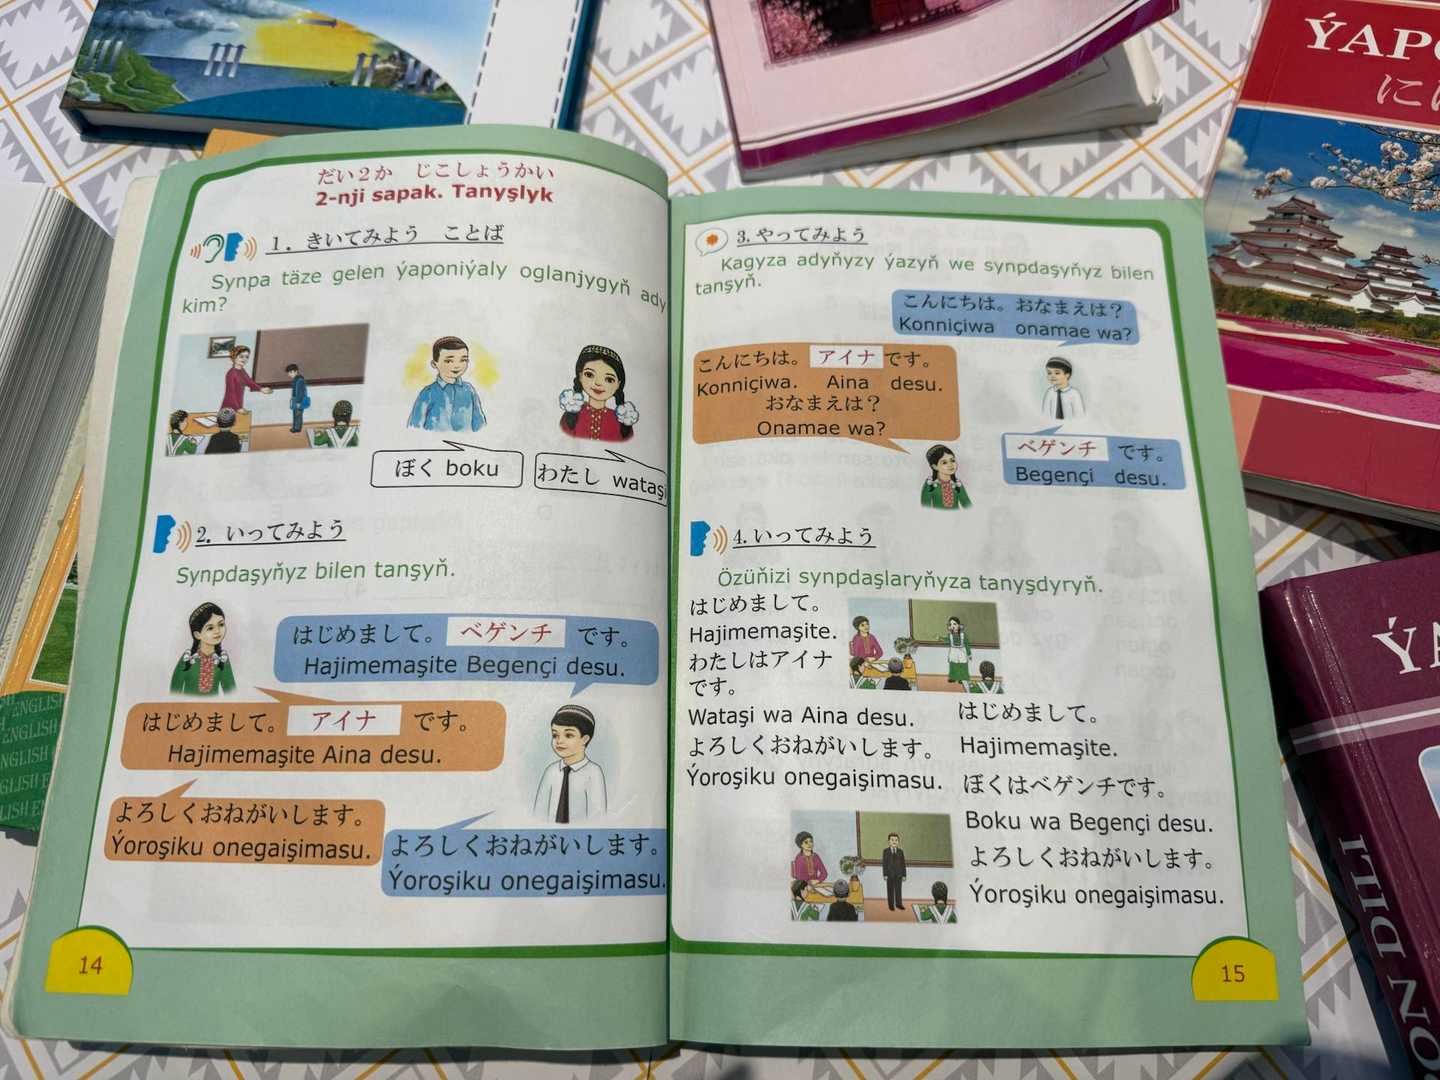 だい２か　じこしょうかい
2-nji sapak. Tanyşlyk
1. きいてみよう　ことば
Synpa täze gelen ýaponiýaly oglanjygyň ady
kim?
ぼく boku
わたし wataşi
2. いってみよう
Synpdaşyňyz bilen tanşyň.
はじめまして。 ベゲンチ です。
Hajimemaşite Begençi desu.
はじめまして。 アイナ です。
Hajimemaşite Aina desu.
よろしくおねがいします。
Ýoroşiku onegaişimasu.
よろしくおねがいします。
Ýoroşiku onegaişimasu.
14
3.やってみよう
Kagyza adyňyzy ýazyň we synpdaşyňyz bilen
tanşyň.
こんにちは。おなまえは？
Konniçiwa onamae wa?
こんにちは。 アイナ です。
Konniçiwa. Aina desu.
おなまえは？
Onamae wa?
ベゲンチ です。
Begençi desu.
4.いってみよう
Özüňizi synpdaşlaryňyza tanyşdyryň.
はじめまして。
Hajimemaşite.
わたしはアイナ
です。
Wataşi wa Aina desu.
よろしくおねがいします。
Ýoroşiku onegaişimasu.
はじめまして。
Hajimemaşite.
ぼくはベゲンチです。
Boku wa Begençi desu.
よろしくおねがいします。
Ýoroşiku onegaişimasu.
15
ÝAPO
に
DILI
ENGLISH
ENGLISH
ENGLISH